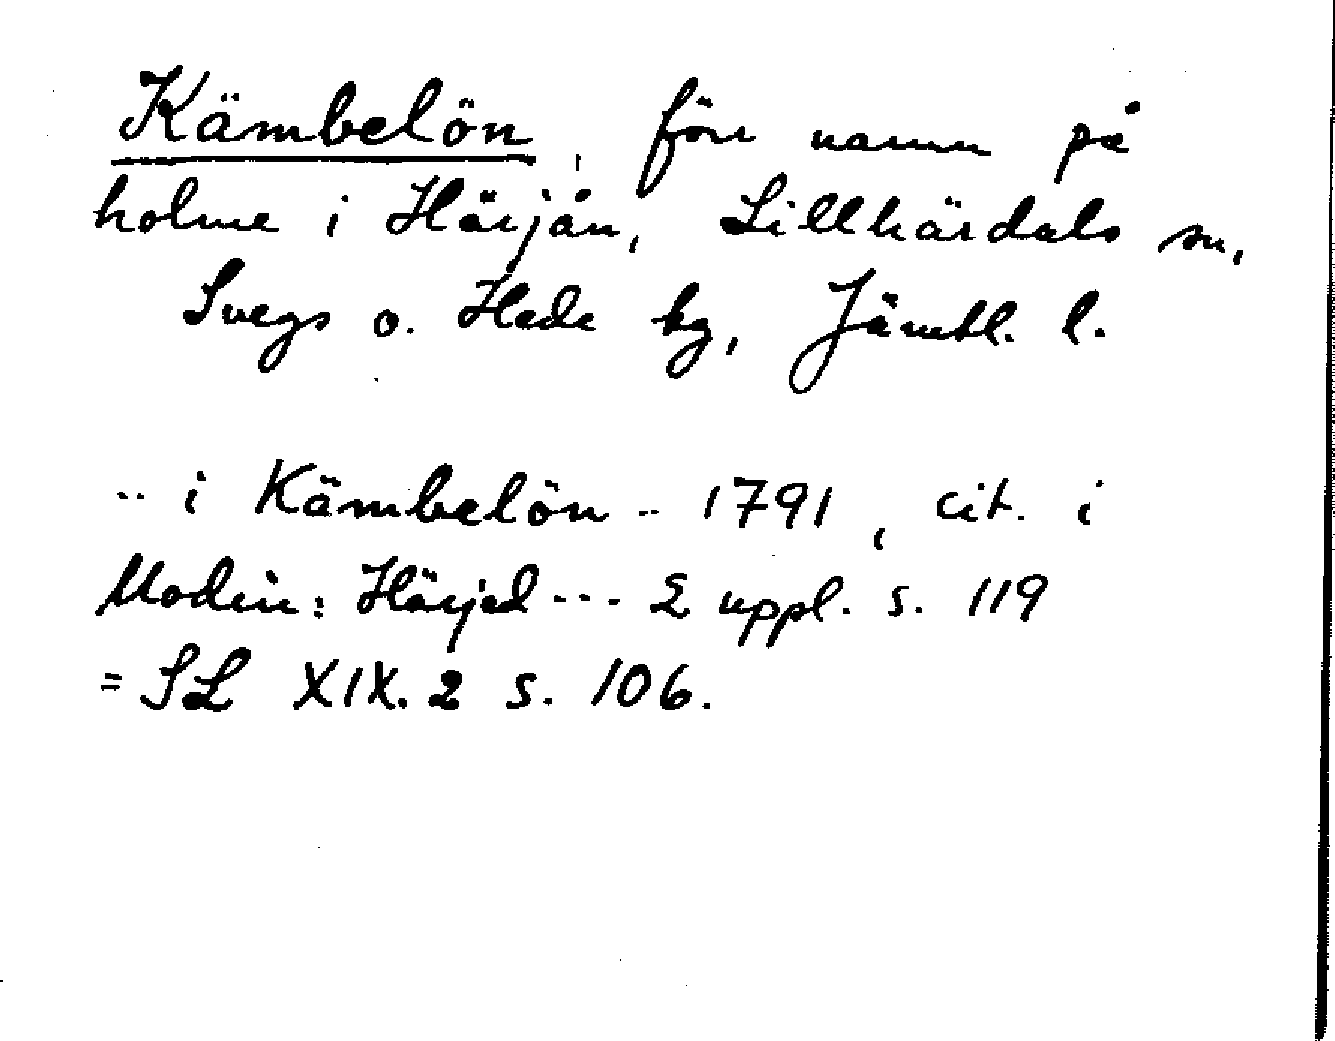 Kämbelön, förr namn på
holme i Härjån, Lillhärdals sn,
Svegs o. Hede tg, Jämtl. l.
.. i Kämbelön .. 1791, cit. i
Modin: Härjed --- 2 uppl. s. 119
= SL XIX. 2 s. 106.